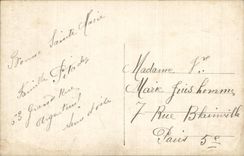 Bonne Sainte Marie
Famille
53 Grand Rue
Argenteuil
Seine et Oise
Madame Vve
Marie
7 Rue Blainville
Paris 5e